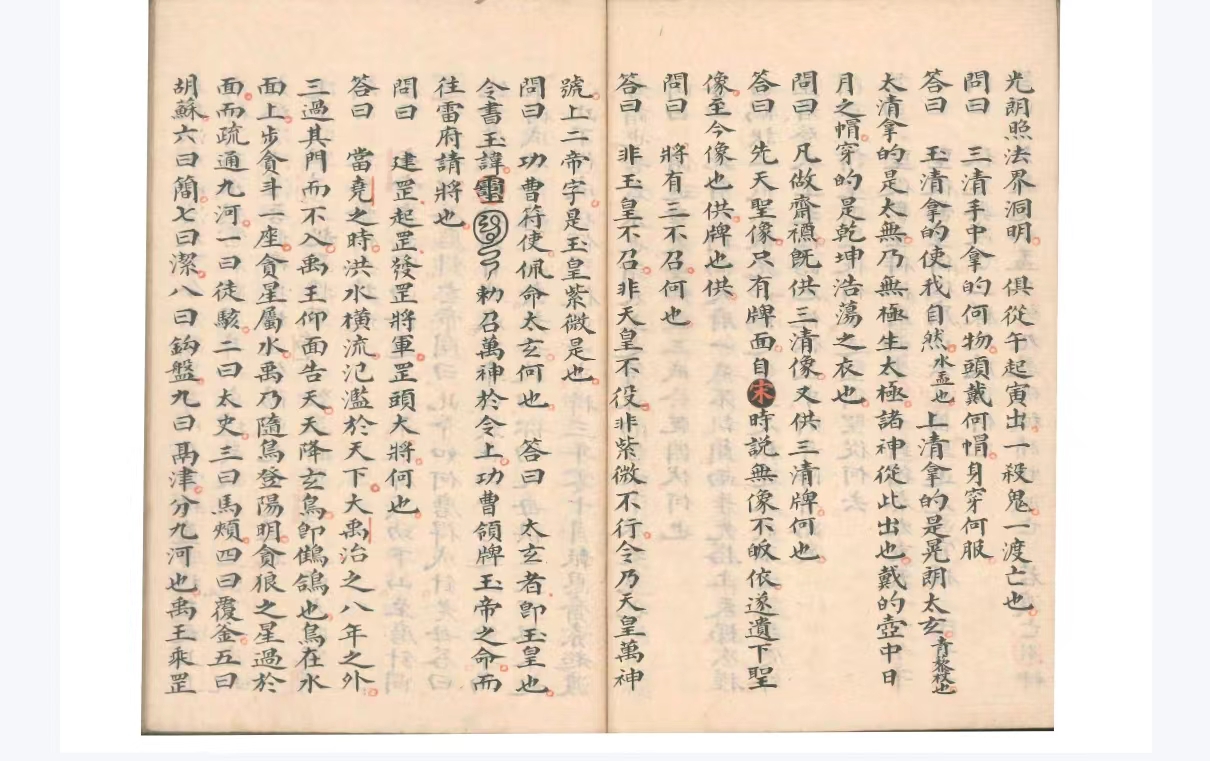 光朗照法界洞明 俱從午起寅出一殺鬼一渡亡也
問曰 三清手中拿的何物頭戴何帽身穿何服
答曰 玉清拿的使我自然水盂也上清拿的是晃朗太玄青藜杖也
太清拿的是太無乃無極生太極諸神從此出也戴的壺中日
月之帽穿的是乾坤浩蕩之衣也
問曰凡做齋禳既供三清像又供三清牌何也
答曰 先天聖像只有牌面自末時説無像不皈依遂遺下聖
像至今像也供牌也供
問曰 將有三不召何也
答曰 非玉皇不召非天皇不役非紫微不行令乃天皇萬神
號上二帝字是玉皇紫微是也
問曰 功曹符使佩命太玄何也 答曰 太玄者卽玉皇也
令書玉諱 勅召萬神於令上功曹領牌玉帝之命而
往雷府請將也
問曰 建罡起罡發罡將軍罡頭大將何也
答曰 當堯之時洪水橫流氾濫於天下大禹治之八年之外
三過其門而不入禹王仰面告天天降玄鳥卽鶴鴿也鳥在水
面上步貪斗一座貪星屬水禹乃隨鳥登陽明貪狼之星過於
面而疏通九河一曰徒駭二曰太史三曰馬頰四曰覆釜五曰
胡蘇六曰簡七曰潔八曰鈎盤九曰鬲津分九河也禹王乘罡